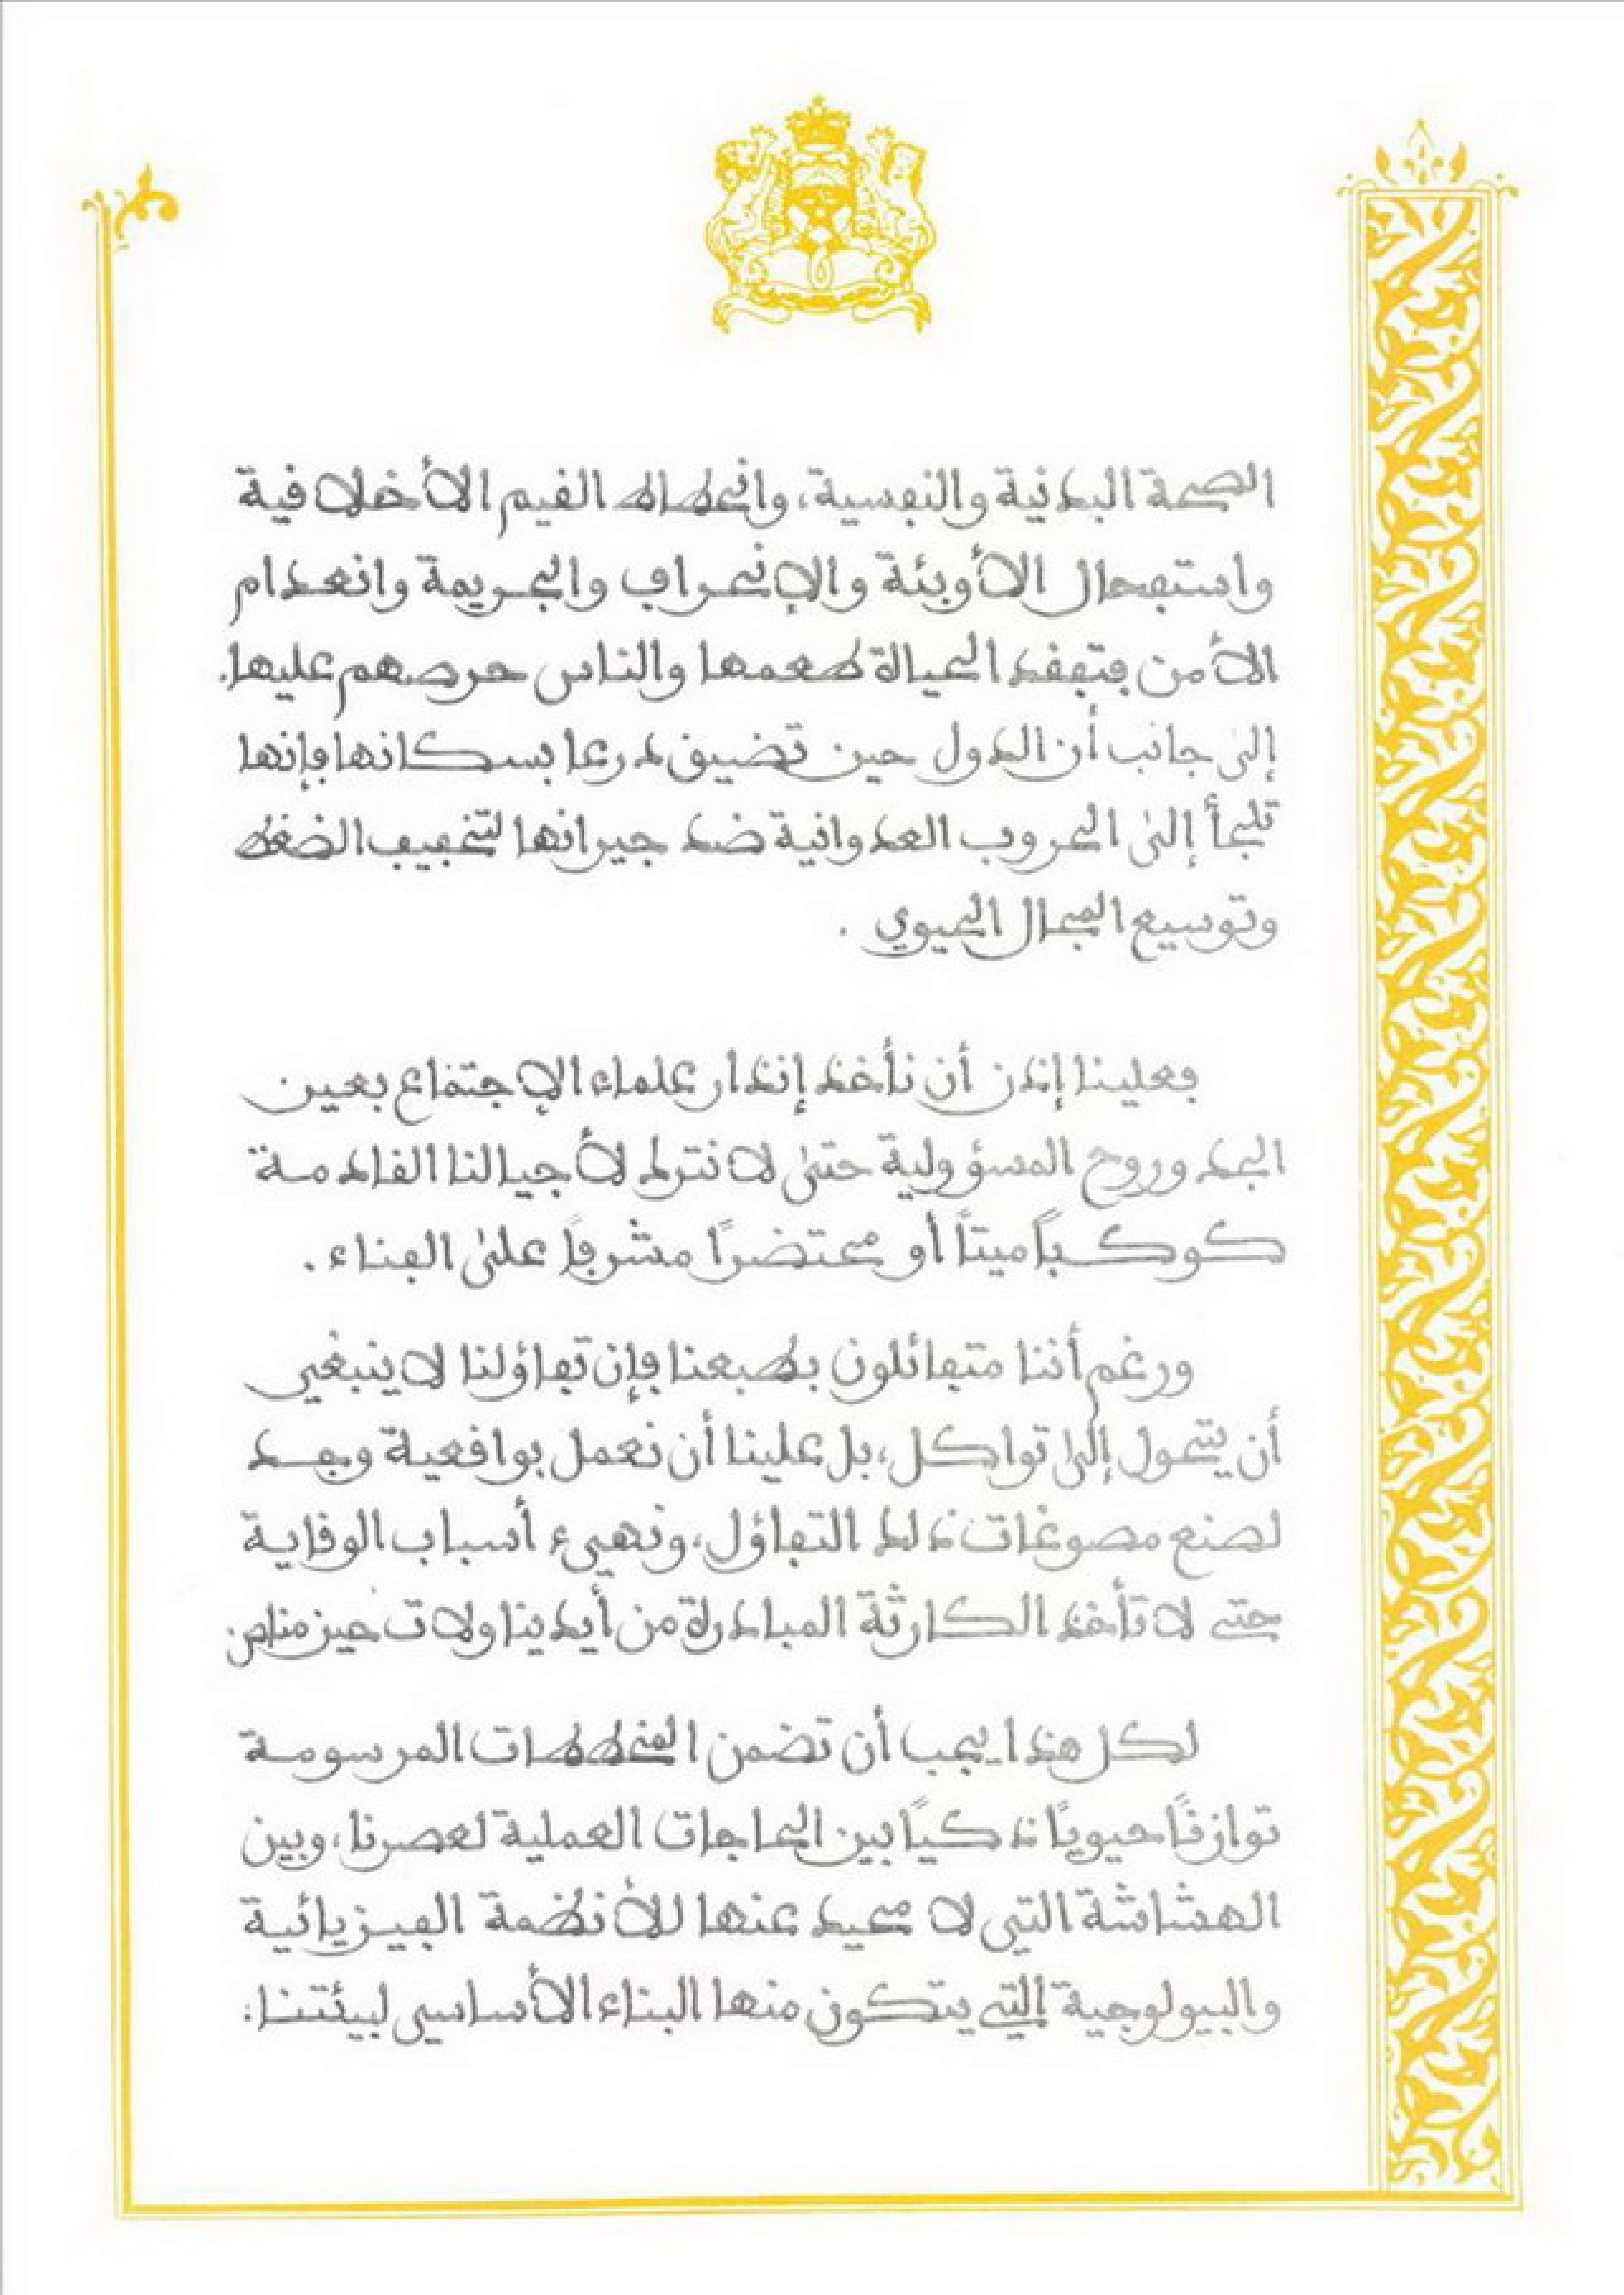 الصحة البدنية والنفسية، وانحطاط القيم الأخلاقية
واستفحال الأوبئة والإنحراف والجريمة وانعدام
الأمن فتفقد الحياة طعمها والناس حرصهم عليها.
إلى جانب أن الدول حين تضيق ذرعا بسكانها فإنها
تلجأ إلى الحروب العدوانية ضد جيرانها لتخفيف الضغط
وتوسيع المجال الحيوي .
فعلينا إذن أن نأخذ إنذار علماء الإجتماع بعين
الجد وروح المسؤولية حتى لا نترك لأجيالنا القادمة
كوكباً ميتاً أو محتضراً مشرفاً على الفناء .
ورغم أننا متفائلون بطبعنا فإن تفاؤلنا لا ينبغي
أن يتحول إلى تواكل، بل علينا أن نعمل بواقعية وجد
لصنع مصوغات ذلك التفاؤل، ونهيء أسباب الوقاية
حتى لا تأخذ الكارثة المبادرة من أيدينا ولات حين مناص
لكل هذا يجب أن تضمن المخططات المرسومة
توازنًا حيويًا ذكيًا بين الحاجات العملية لعصرنا، وبين
الهشاشة التي لا محيد عنها للأنظمة الفيزيائية
والبيولوجية التي يتكون منها البناء الأساسي لبيئتنا: